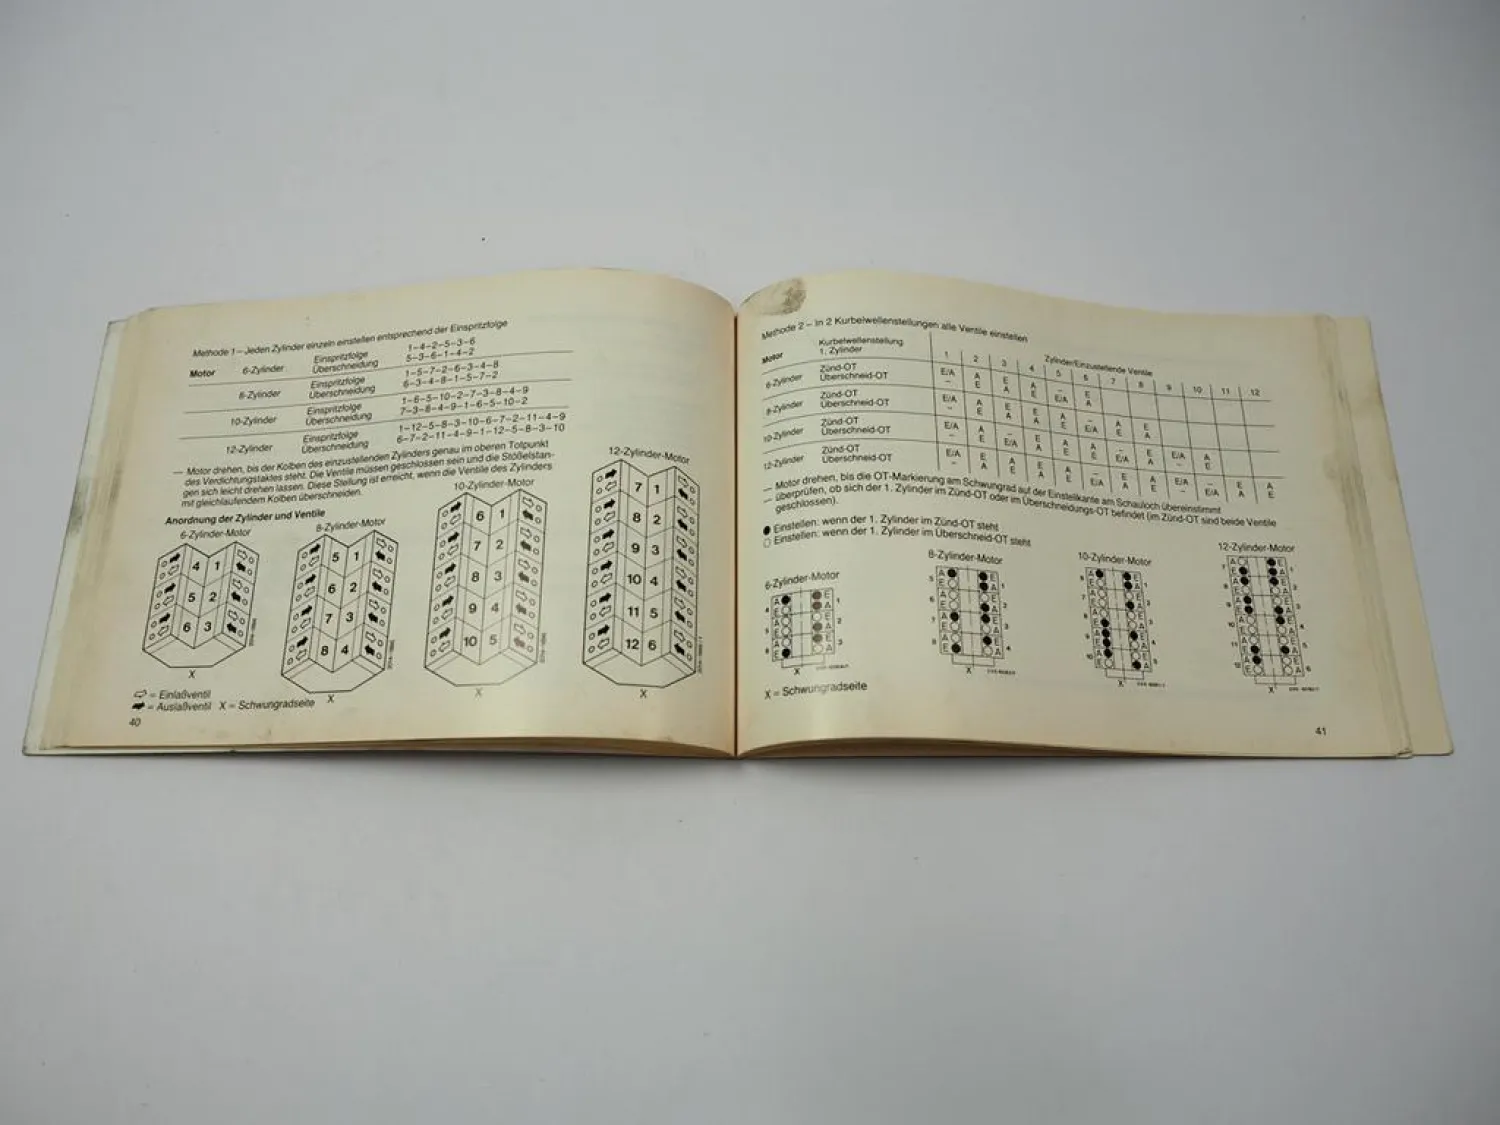 Methode 1 – Jeden Zylinder einzeln einstellen entsprechend der Einspritzfolge
Motor 6-Zylinder Einspritzfolge 1–4–2–5–3–6
Überschneidung 5–3–6–1–4–2
8-Zylinder Einspritzfolge 1–5–7–2–6–3–4–8
Überschneidung 6–3–4–8–1–5–7–2
10-Zylinder Einspritzfolge 1–6–5–10–2–7–3–8–4–9
Überschneidung 7–3–8–4–9–1–6–5–10–2
12-Zylinder Einspritzfolge 1–12–5–8–3–10–6–7–2–11–4–9
Überschneidung 6–7–2–11–4–9–1–12–5–8–3–10
— Motor drehen, bis der Kolben des einzustellenden Zylinders genau im oberen Totpunkt
des Verdichtungstaktes steht. Die Ventile müssen geschlossen sein und die Stößelstan-
gen sich leicht drehen lassen. Diese Stellung ist erreicht, wenn die Ventile des Zylinders
mit gleichlaufendem Kolben überschneiden.
Anordnung der Zylinder und Ventile
6-Zylinder-Motor
4 1
5 2
6 3
X
8-Zylinder-Motor
5 1
6 2
7 3
8 4
X
10-Zylinder-Motor
6 1
7 2
8 3
9 4
10 5
X
12-Zylinder-Motor
7 1
8 2
9 3
10 4
11 5
12 6
X
= Einlaßventil
= Auslaßventil X = Schwungradseite
40
Methode 2 – In 2 Kurbelwellenstellungen alle Ventile einstellen
Motor Kurbelwellenstellung Zylinder/Einzustellende Ventile
1. Zylinder 1 2 3 4 5 6 7 8 9 10 11 12
6-Zylinder Zünd-OT E/A A E A – E
Überschneid-OT – E A E E/A A
8-Zylinder Zünd-OT E/A A E E A – A E
Überschneid-OT – E A A E E/A E A
10-Zylinder Zünd-OT E/A A – E A A – E E/A A
Überschneid-OT – E E/A A E E E/A A – E
12-Zylinder Zünd-OT E/A E A E A – E/A A E – E A
Überschneid-OT – A E A E E/A – E A E/A A E
— Motor drehen, bis die OT-Markierung am Schwungrad auf der Einstellkante am Schauloch übereinstimmt
— überprüfen, ob sich der 1. Zylinder im Zünd-OT oder im Überschneidungs-OT befindet (im Zünd-OT sind beide Ventile
geschlossen).
● Einstellen: wenn der 1. Zylinder im Zünd-OT steht
○ Einstellen: wenn der 1. Zylinder im Überschneid-OT steht
6-Zylinder-Motor
8-Zylinder-Motor
10-Zylinder-Motor
12-Zylinder-Motor
X
X
X
X
X = Schwungradseite
41